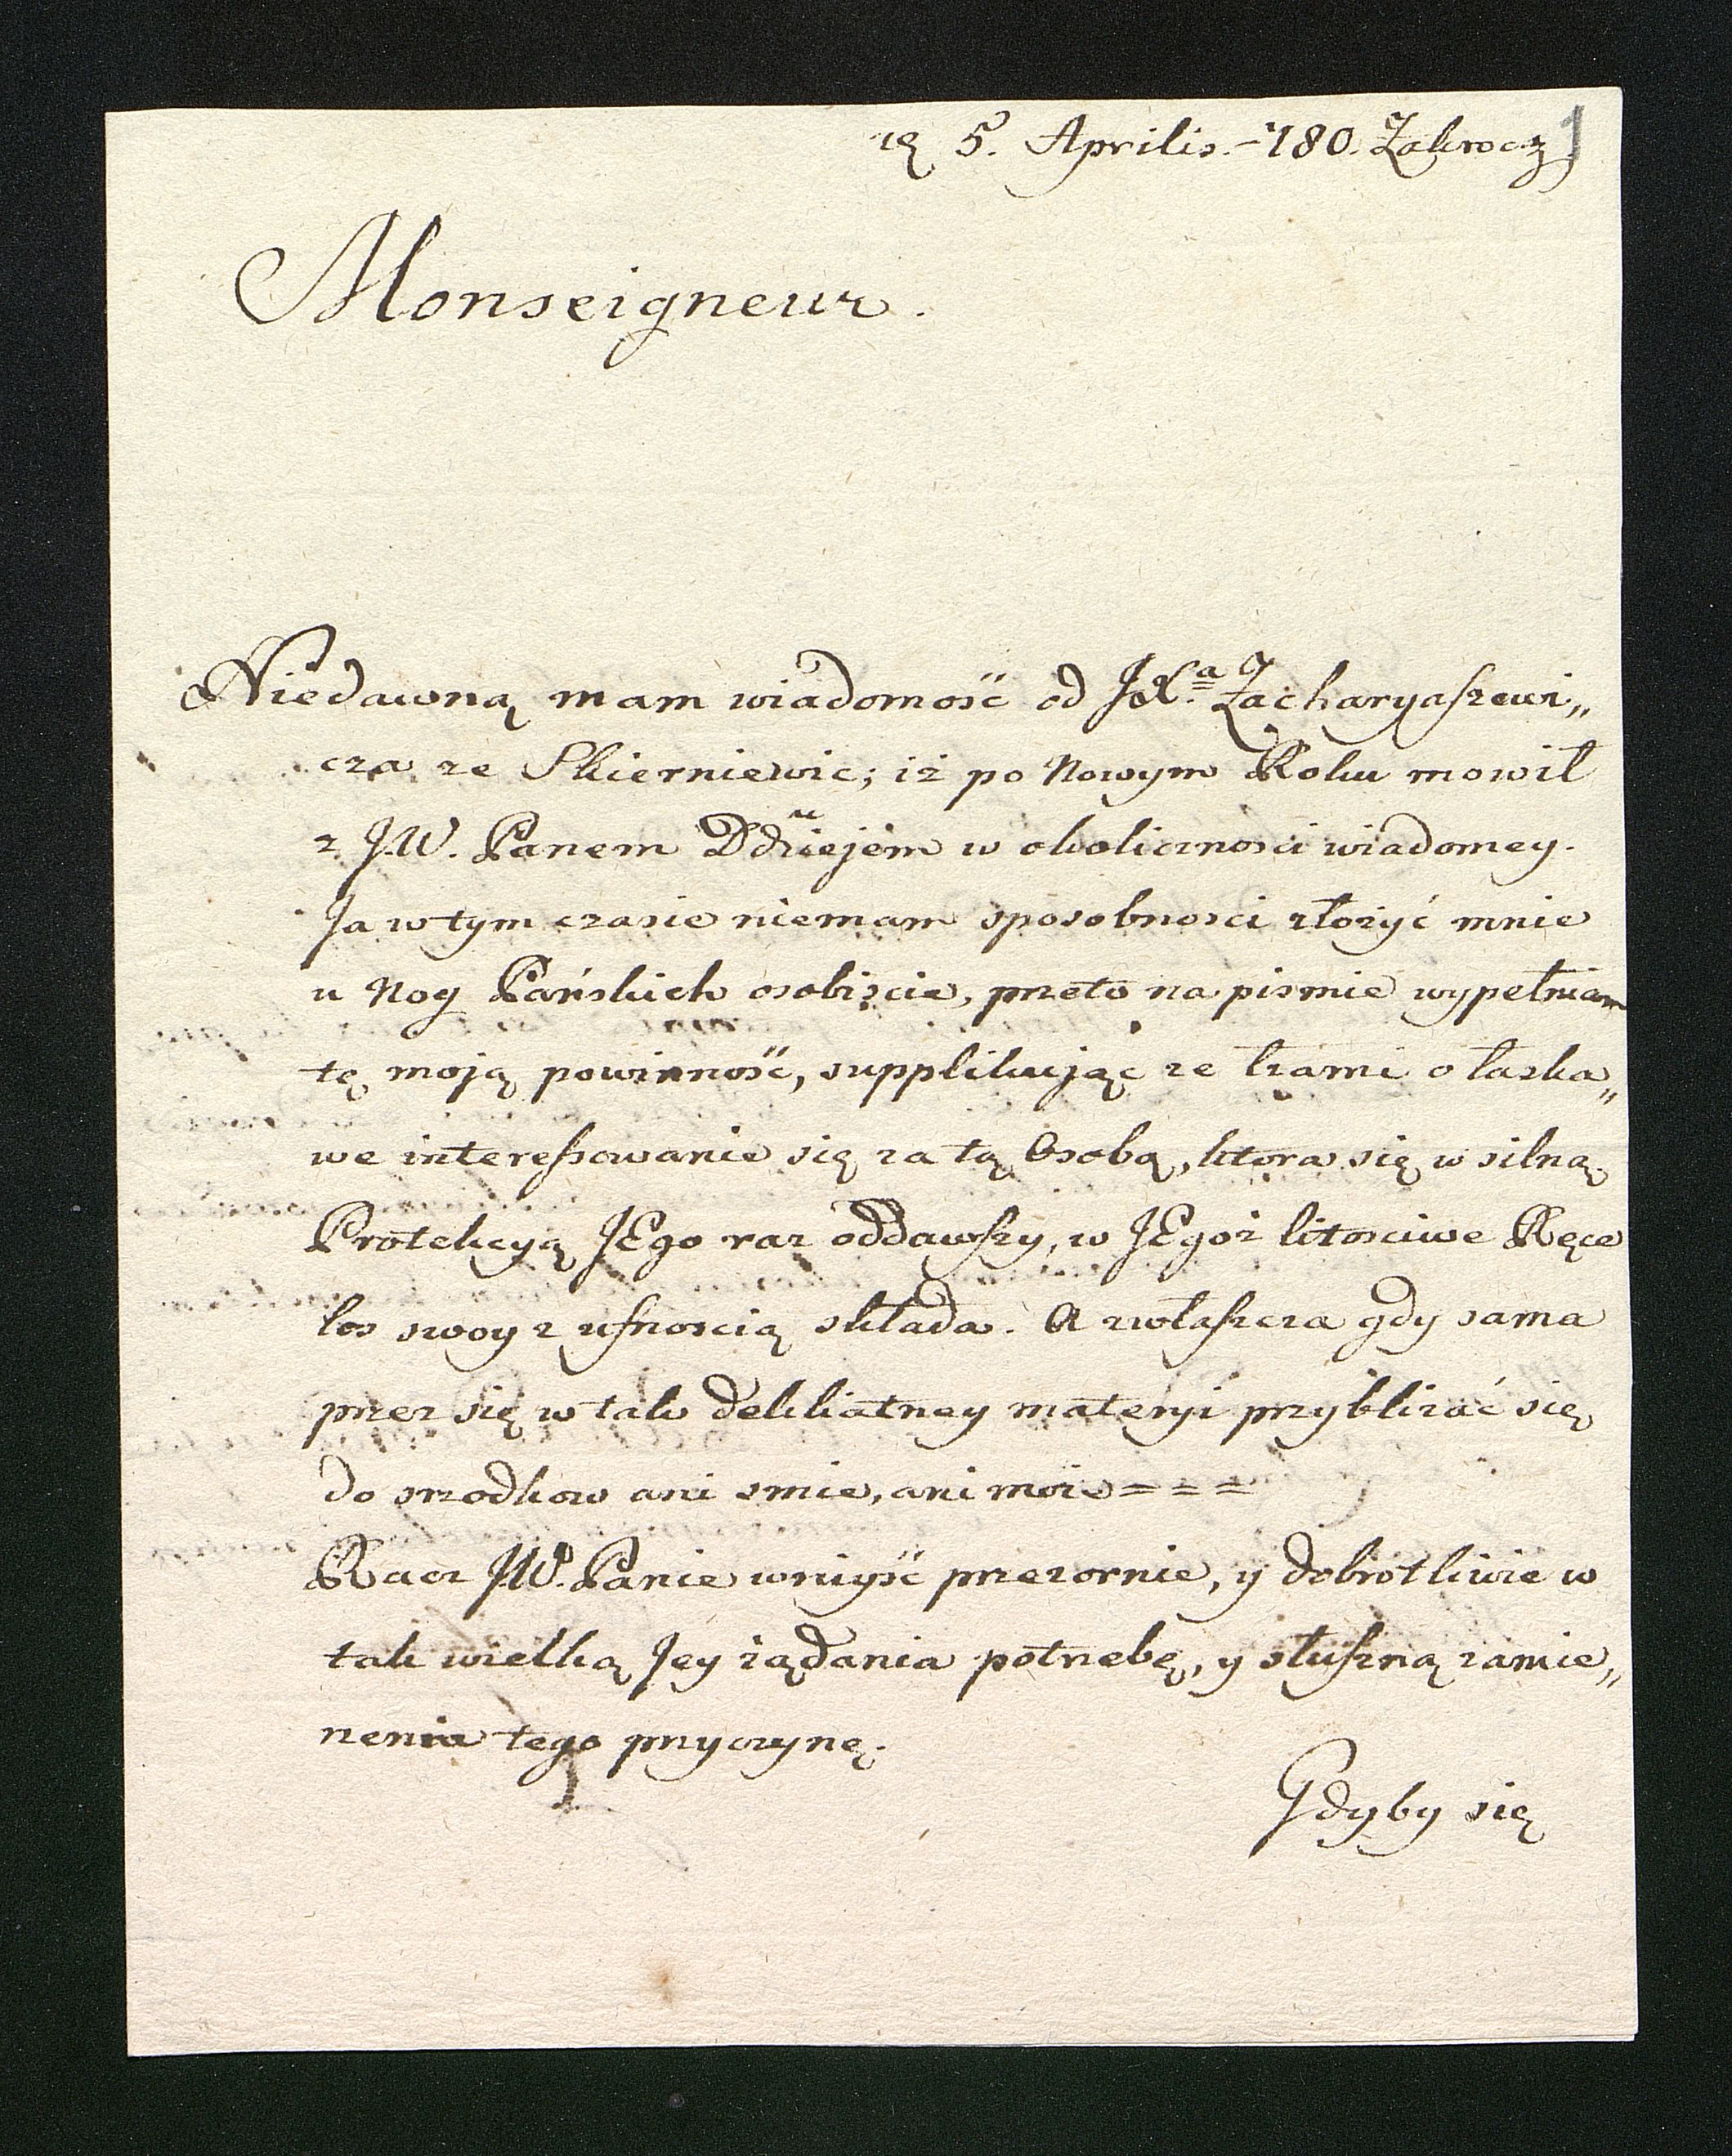 5. Aprilis. 780. Zakrocz
Monseigneur.
Niedawną mam wiadomość od JXa. Zacharyaszewi„
cza ze Skierniewic; iż po Nowym Roku mowił
z J.W. Panem Ddziejem w okoliczności wiadomey.
Ja w tym czasie niemam sposobności złożyć mnie
u Nog Pańskich osobiście, przeto na pismie wypełniam
tę moją powinność, supplikując ze łzami o łaska„
we interessowanie się za tą Osobą, ktora się w silną
Protekcyą JEgo raz oddawszy, w JEgoż litościwe Ręce
los swoy z ufnoscią składa. A zwłaszcza gdy sama
przez się w tak delikatney materyi przybliżać się
do srzodkow ani smie, ani moze = = =
Racz J.W. Panie wniyść przezornie, y dobrotliwie w
tak wielką Jey żądania potrzebę, y słuszną zamie„
rzenia tego przyczynę.
Gdyby się